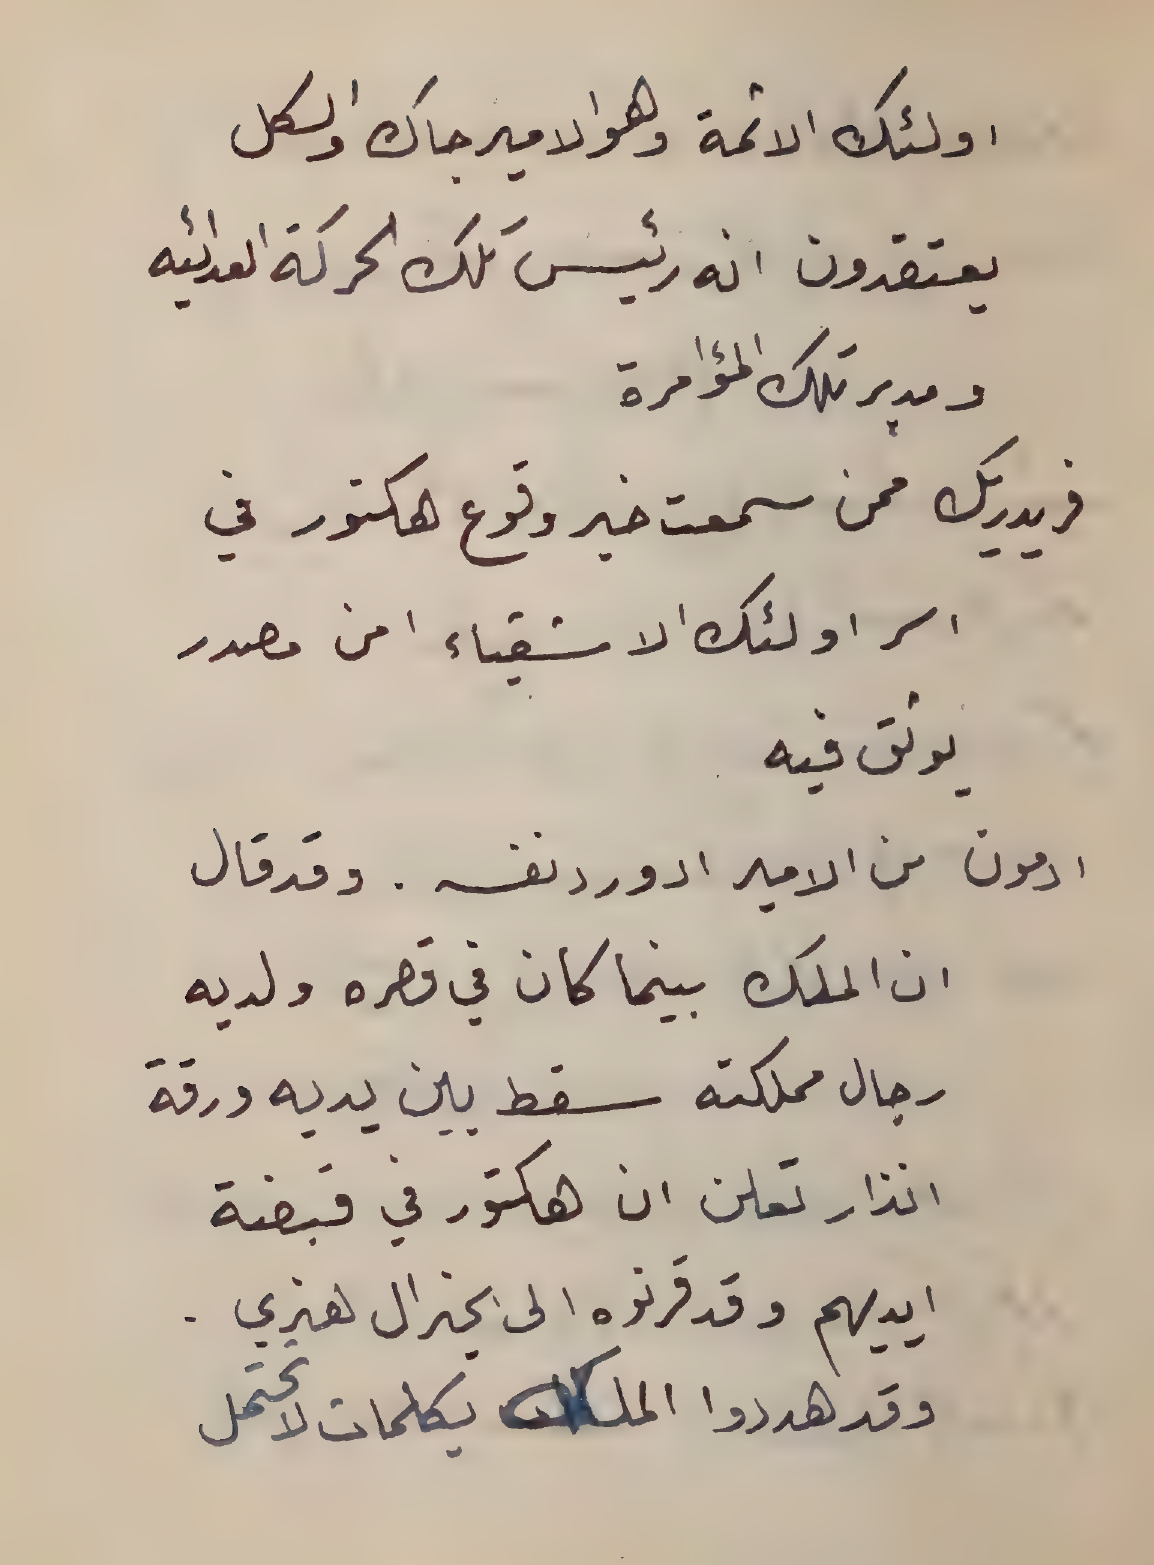 اولئك الاثمة وهو الامير جاك والكل
يعتقدون انه رئيس تلك الحركة العدائيه
ومدير تلك المؤامرة
فريدريك ممن سمعت خبر وقوع هكتور في
اسر اولئك الاشقياء امن مصدر
يوثق فيه
ادمون من الامير ادورد نفسه . وقد قال
ان الملك بينما كان في قصره ولديه
رجال مملكته سقط بين يديه ورقة
انذار تعلن ان هكتور في قبضة
ايديهم وقد قرنوه الى الجنرال هنري .
وقد هددوا الملك بكلمات لا تحتمل